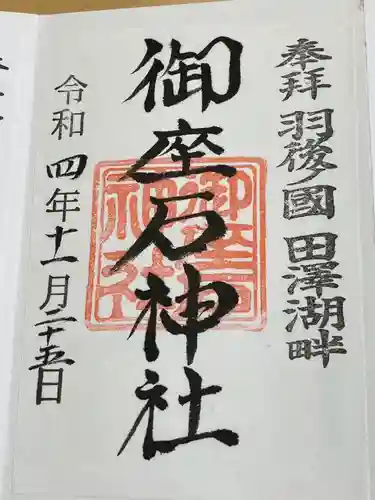 奉拝 羽後ノ國 田澤湖畔
御座石神社
令和四年十一月二十五日
御座石神社